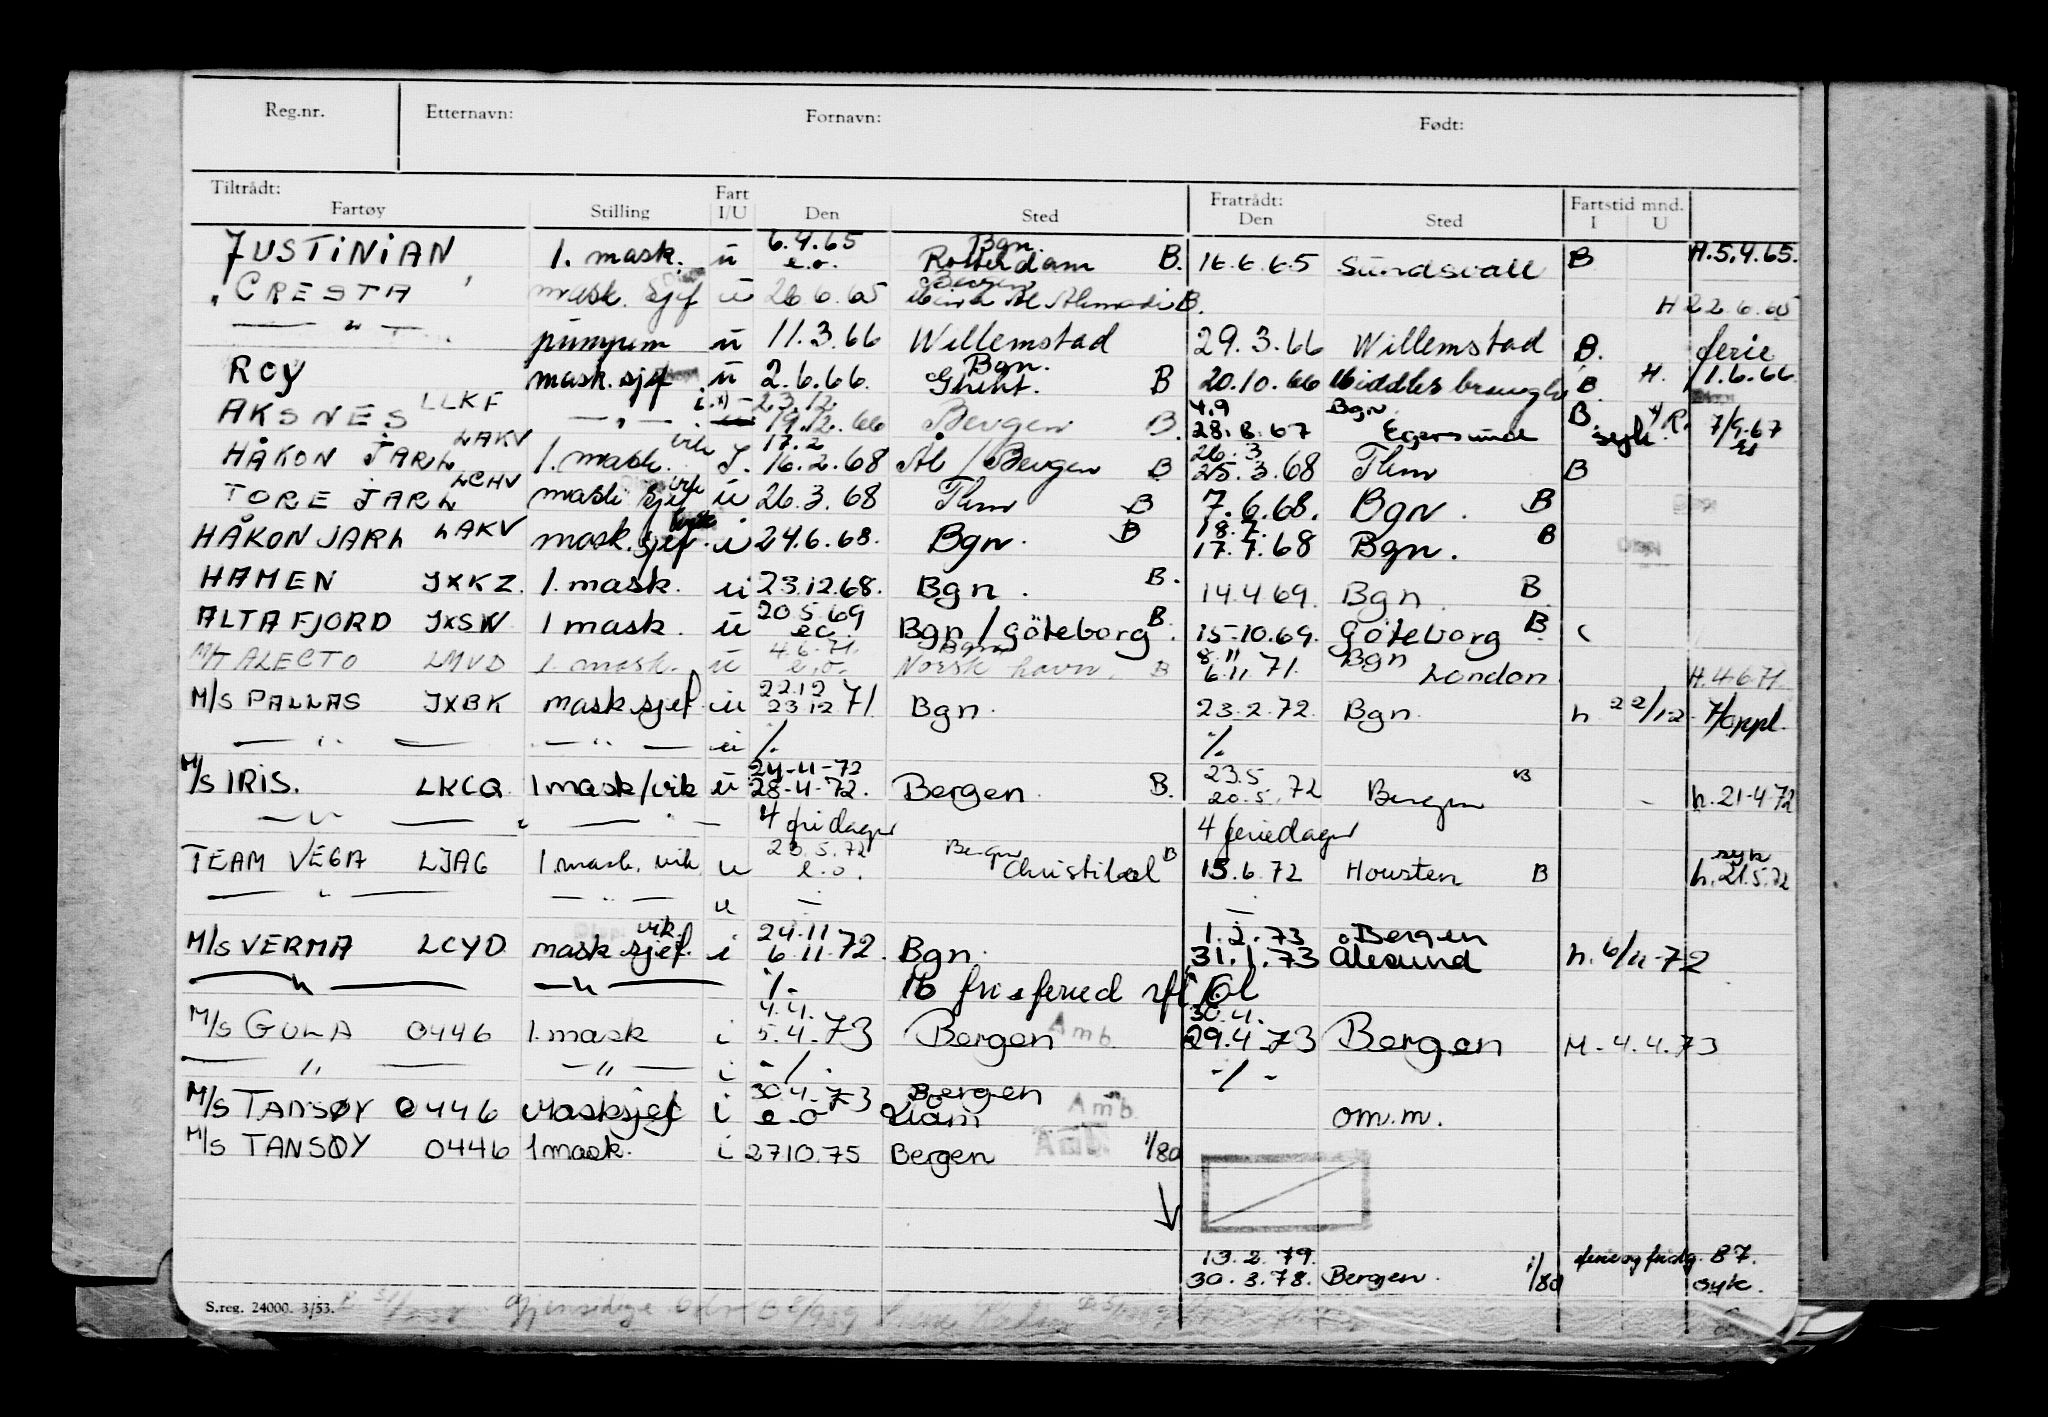 Reg.nr. Etternavn: Fornavn: Født:
Tiltrådt: Fart Fratrådt: Fartstid mnd.
Fartøy Stilling I/U Den Sted Den Sted I U
JUSTINIAN 1. mask. u 6.4.65 e.o. Bgn. Rotterdam B. 16.6.65 Sundsvall B H.5.4.65.
CRESTA mask. sjef u 26 6. 65 Bergen Mina Al Ahmadi B. H 22.6.65
— " — pumpem u 11.3.66 Willemstad 29.3.66 Willemstad B. ferie
ROY mask. sjef u 2.6.66. Bgn. Ghent. B 20.10.66 Middlesbrough B H. 1.6.66
AKSNES LLKF — " — i 23.12. 19.12.66 Bergen B. 4.9 28.8.67 Bgn. Egersund B. syk 7/9.67
HÅKON JARL LAKV 1. mask. vik I. 17.2 16.2.68 Ål / Bergen B 26.3 25.3.68 Thm B
TORE JARL LCHV mask sjef vik u 26.3.68 Thm B 7.6.68. Bgn. B
HÅKON JARL LAKV mask. sjef i 24.6.68. Bgn. B 18.7. 17.7.68 Bgn. B
HAMEN JXKZ. 1. mask. u 23.12.68. Bgn. B. 14.4.69. Bgn. B
ALTAFJORD JXSW 1 mask. u 20.5.69 e.o. Bgn / Göteborg B. 15.10.69. Göteborg B
M/T ALECTO LMVD 1. mask. u 4.6.71. e.o. Bgn Norsk havn. B 8.11 6.11.71. Bgn London H.4.6.71
M/S PALLAS JXBK mask.sjef. u 22.12 23.12 71. Bgn. 23.2.72. Bgn. h 22/12- 7/oppl.
— " — — " — u ·/. ·/.
M/S IRIS. LKCQ 1 mask/vik u 24-4-72 28-4-72. Bergen. B. 23.5 20.5.72 Bergen B h.21-4-72
— " — " — 4 fridager 4 feriedager
TEAM VEGA LJAG 1 mask. vik u 23.5.72 e.o. Bergen Christobal B 13.6.72 Houston B syk h.21.5.72
— " — — " — u — —
M/S VERMA LCYD mask sjef. vik. i 24.11 6.11.72. Bgn. 1.2.73 31.1.73 Bergen Ålesund h. 6/11-72
— " — — " — ·/. 16 fri & feried
M/S GULA 0446 1. mask i 4.4. 5.4.73 Bergen Amb. 30.4. 29.4.73 Bergen M. 4.4.73
— " — — " — i -/. -/-
M/S TANSØY 0446 Masksjef i 30.4.73 e.o Bergen Amb. om.m.
M/S TANSØY 0446 1 mask. i 27 10.75 Bergen 1/80
13.2.79. ferie og fridg. 87.
30.3.78. Bergen. 1/80 syk.
S.reg. 24000. 3/53. Gjensidige